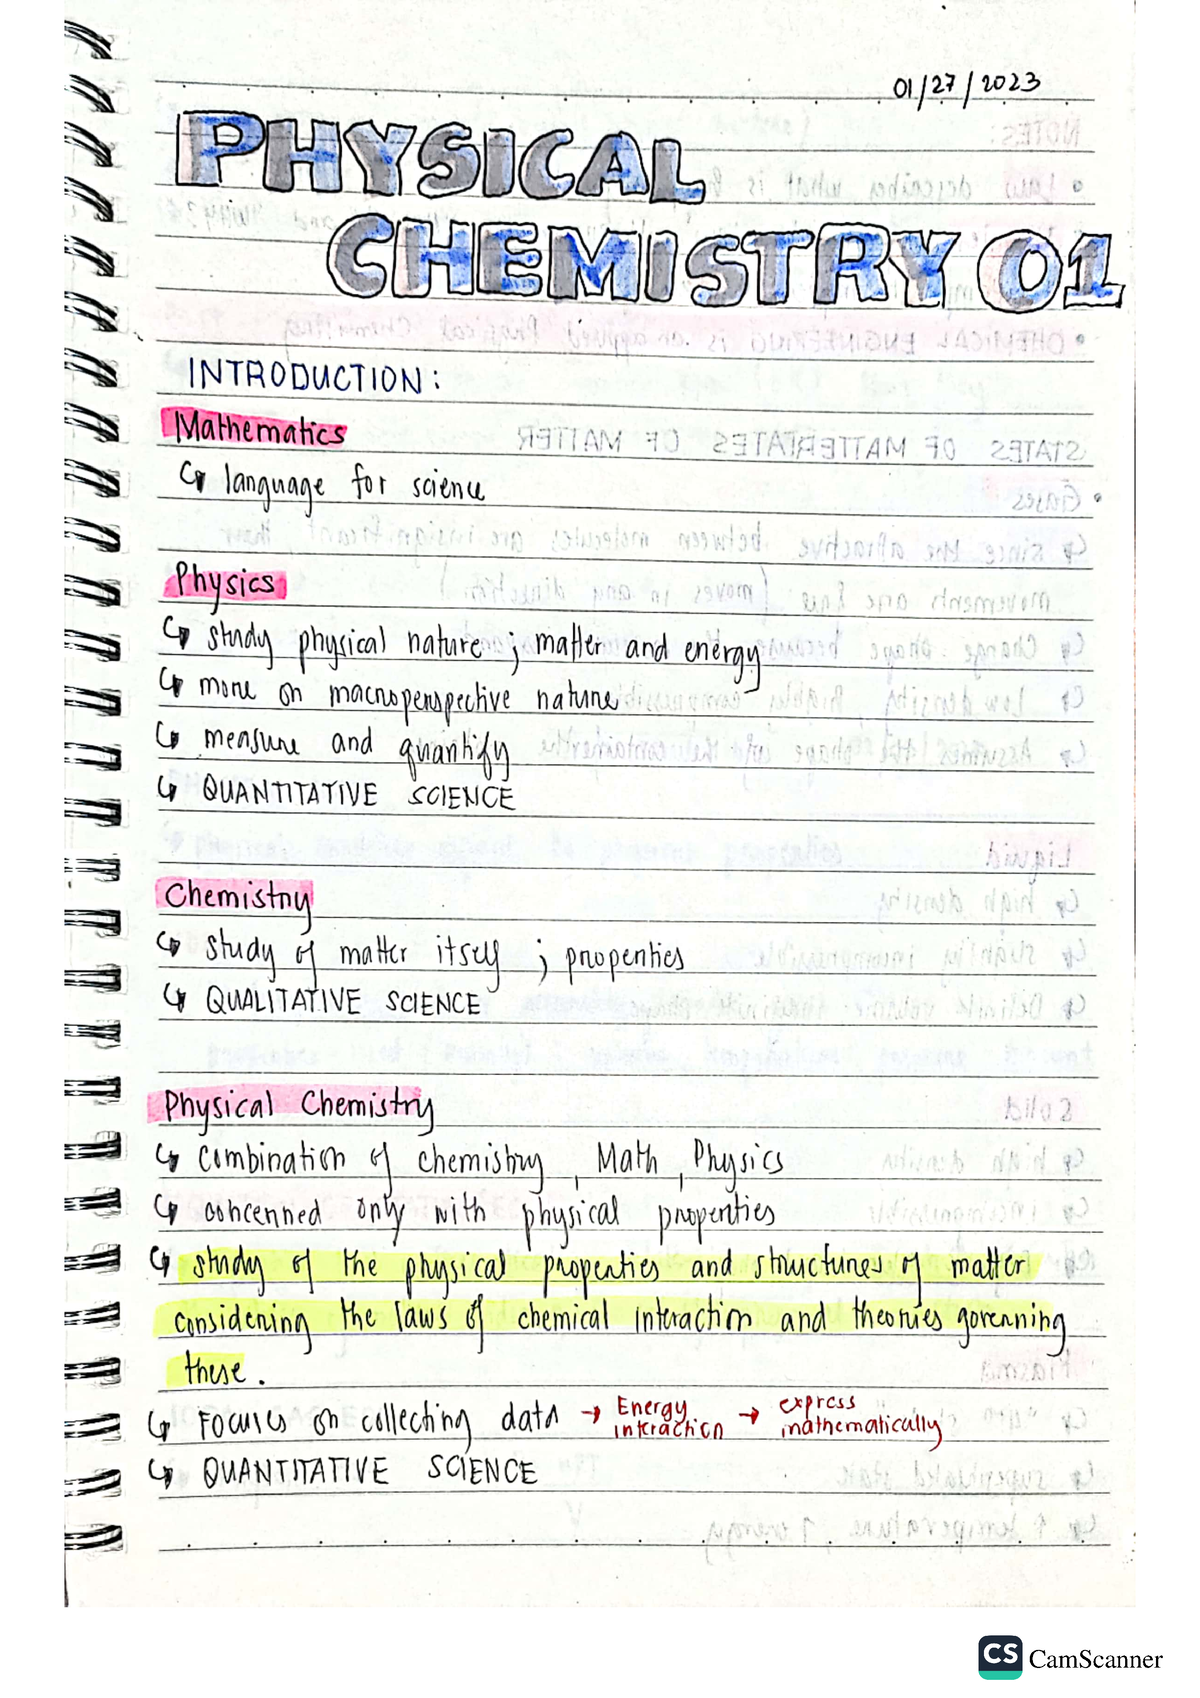 01/27/2023
PHYSICAL
CHEMISTRY 01
INTRODUCTION:
Mathematics
↳ language for science
Physics
↳ study physical nature ; matter and energy
↳ more on macroperspective nature
↳ measure and quantify
↳ QUANTITATIVE SCIENCE
Chemistry
↳ study of matter itself ; properties
↳ QUALITATIVE SCIENCE
Physical Chemistry
↳ combination of chemistry, Math, Physics
↳ concerned only with physical properties
↳ study of the physical properties and structures of matter
considering the laws of chemical interaction and theories governing
these.
↳ Focuses on collecting data → Energy interaction → express mathematically
↳ QUANTITATIVE SCIENCE
CS CamScanner